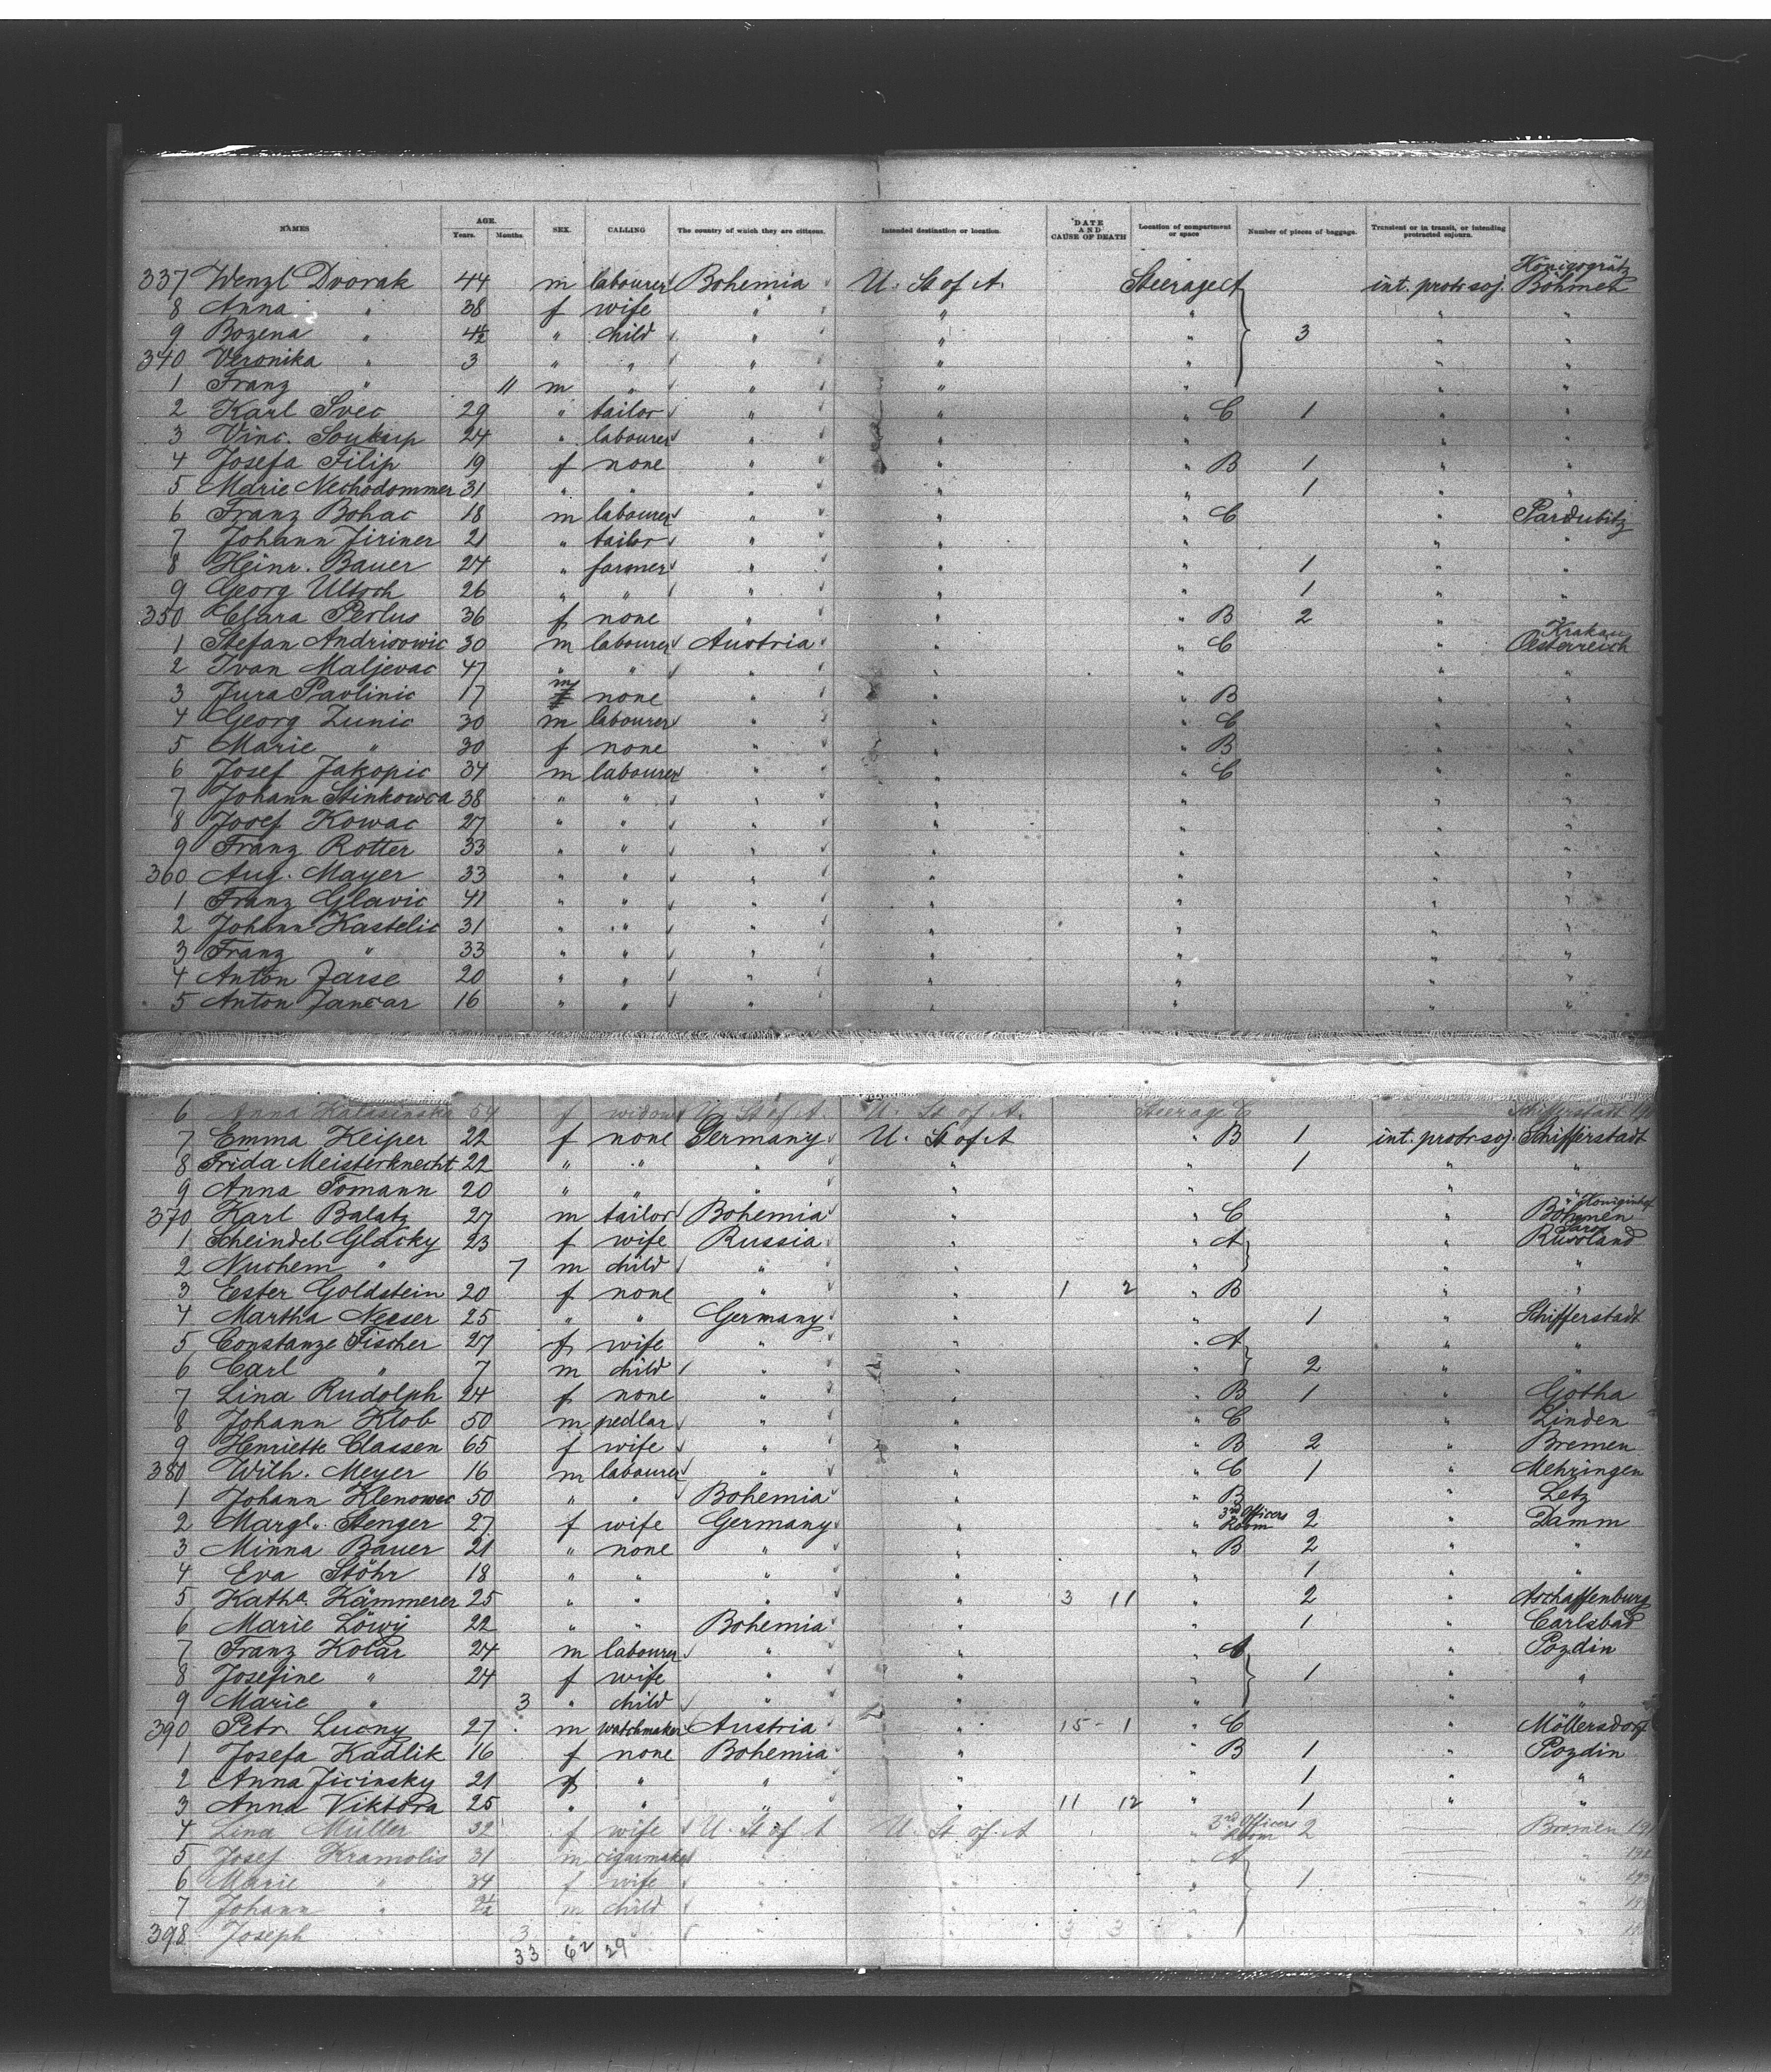 NAMES AGE. Years. Months. SEX. CALLING The country of which they are citizens. Intended destination or location. DATE AND CAUSE OF DEATH Location of compartment or space Number of pieces of baggage. Transient or in transit, or intending protracted sojourn.
Königgrätz
337 Wenzl Dvorak 44 m labourer Bohemia U. St of A. Steerage A int. protr soj. Böhmen
8 Anna " 38 f wife " " " " "
9 Bozena " 4½ " child " " " 3 " "
340 Veronika " 3 " " " " " " "
1 Franz " 11 m " " " " " "
2 Karl Svec 29 " tailor " " " C 1 " "
3 Vinc. Soukup 24 " labourer " " " " "
4 Josefa Filip 19 f none " " " B 1 " "
5 Marie Nechodommer 31 " " " " " 1 " "
6 Franz Bohac 18 m labourer " " " C " Pardubitz
7 Johann Jiriner 21 " tailor " " " " "
8 Heinr. Bauer 24 " farmer " " " 1 " "
9 Georg Ultsch 26 " " " " " 1 " "
350 Clara Perlus 36 f none " " " B 2 "
Krakau
1 Stefan Andrisowic 30 m labourer Austria " " C " Oesterreich
2 Ivan Maljevac 47 " " " " " " "
3 Jura Pavlinic 17 m none " " " B " "
4 Georg Zunic 30 m labourer " " " C " "
5 Marie " 30 f none " " " B " "
6 Josef Jakopic 34 m labourer " " " C " "
7 Johann Stinkowca 38 " " " " " " "
8 Josef Kowac 27 " " " " " " "
9 Franz Rotter 33 " " " " " " "
360 Aug. Mayer 33 " " " " " " "
1 Franz Glavic 41 " " " " " " "
2 Johann Kastelic 31 " " " " " " "
3 Franz " 33 " " " " " " "
4 Anton Jarse 20 " " " " " " "
5 Anton Jancar 16 " " " " " " "
6 Anna Kalasinska 54 f widow U. St of A. U. St of A. Steerage C Schifferstadt
7 Emma Keiper 22 f none Germany U. St of A " B 1 int. protr soj. Schifferstadt
8 Frida Meisterknecht 22 " " " " " 1 " "
9 Anna Tomann 20 " " " " " " "
Königinhof
370 Karl Balatz 27 m tailor Bohemia " " C " Böhmen
1 Scheindel Glacky 23 f wife Russia " " A " Russland
2 Nuchem " 7 m child " " " " "
3 Ester Goldstein 20 f none " " 1 2 " B " "
4 Martha Neaser 25 " " Germany " " 1 " Schifferstadt
5 Constanze Fischer 27 f wife " " " A " "
6 Carl " 7 m child " " " 2 " "
7 Lina Rudolph 24 f none " " " B 1 " Gotha
8 Johann Klob 50 m pedlar " " " C " Linden
9 Henriette Classen 65 f wife " " " B 2 " Bremen
380 Wilh. Meyer 16 m labourer " " " C 1 " Mehringen
1 Johann Klenowec 50 " " Bohemia " " B " Letz
2 Margt. Stenger 27 f wife Germany " " 3rd Officers Room 2 " Damm
3 Minna Bauer 21 " none " " " B 2 " "
4 Eva Stöhr 18 " " " " " 1 " "
5 Katha. Kämmerer 25 " " " " 3 11 " 2 " Aschaffenburg
6 Marie Löwy 22 " " Bohemia " " 1 " Carlsbad
7 Franz Kolar 24 m labourer " " " A " Pozdin
8 Josefine " 24 f wife " " " 1 " "
9 Marie " 3 " child " " " " "
390 Petr. Lucny 27 m watchmaker Austria " 15 - 1 " C " Möllersdorf
1 Josefa Kadlik 16 f none Bohemia " " B 1 " Pozdin
2 Anna Jicinsky 21 f " " " " 1 " "
3 Anna Viktora 25 " " " " 11 12 " 1 " "
4 Lina Müller 32 f wife U. St of A U. St of A " 3rd Officers Room 2 Bremen 191
5 Josef Kramolis 31 m cigarmaker " " " A " 192
6 Marie " 34 f wife " " " 1 " 193
7 Johann " m child " " " "
398 Joseph " 3 " " " " 3 3 " "
33 62 29